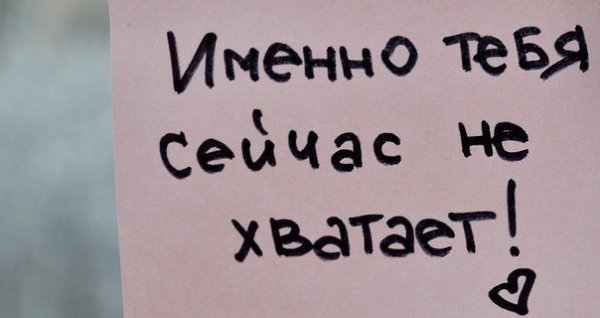 Именно тебя
сейчас не
хватает!